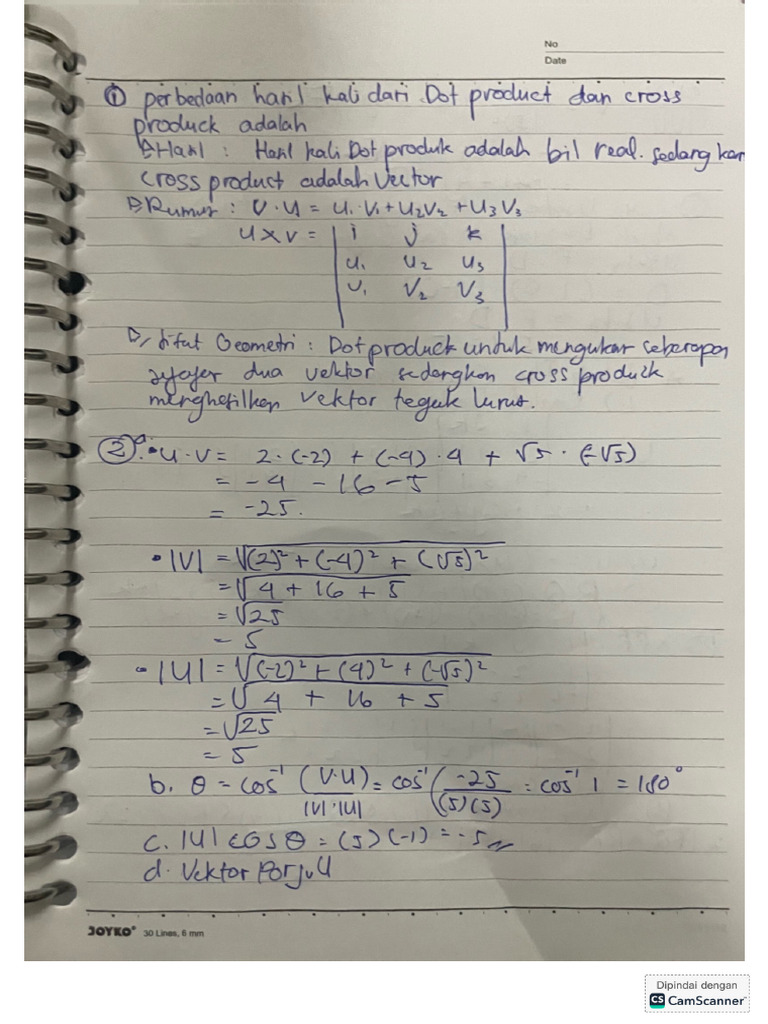 No
Date
① perbedaan hasil kali dari Dot product dan cross
produck adalah
▷ Hasil : Hasil kali Dot produk adalah bil real. sedangkan
cross product adalah Vector
▷ Rumus : V · U = U₁·V₁ + U₂V₂ + U₃V₃
U × V = | i j k |
| U₁ U₂ U₃ |
| V₁ V₂ V₃ |
▷ Sifat Geometri : Dot product untuk mengukur seberapa
dua vektor sedangkan cross produck
menghasilkan vektor teguk lurus.
② a. • U · V = 2 · (-2) + (-4) · 4 + √5 · (-√5)
= -4 - 16 - 5
= -25.
• |V| = √(2)² + (-4)² + (√5)²
= √4 + 16 + 5
= √25
= 5
• |U| = √(-2)² + (4)² + (-√5)²
= √4 + 16 + 5
= √25
= 5
b. θ = cos⁻¹ (V·U)/|V|·|U| = cos⁻¹ (-25/(5)(5) = cos⁻¹ 1 = 180°
c. |U| cos θ = (5) (-1) = -5
d. Vektor Porju U
JOYKO® 30 Lines, 6 mm
Dipindai dengan
CS CamScanner